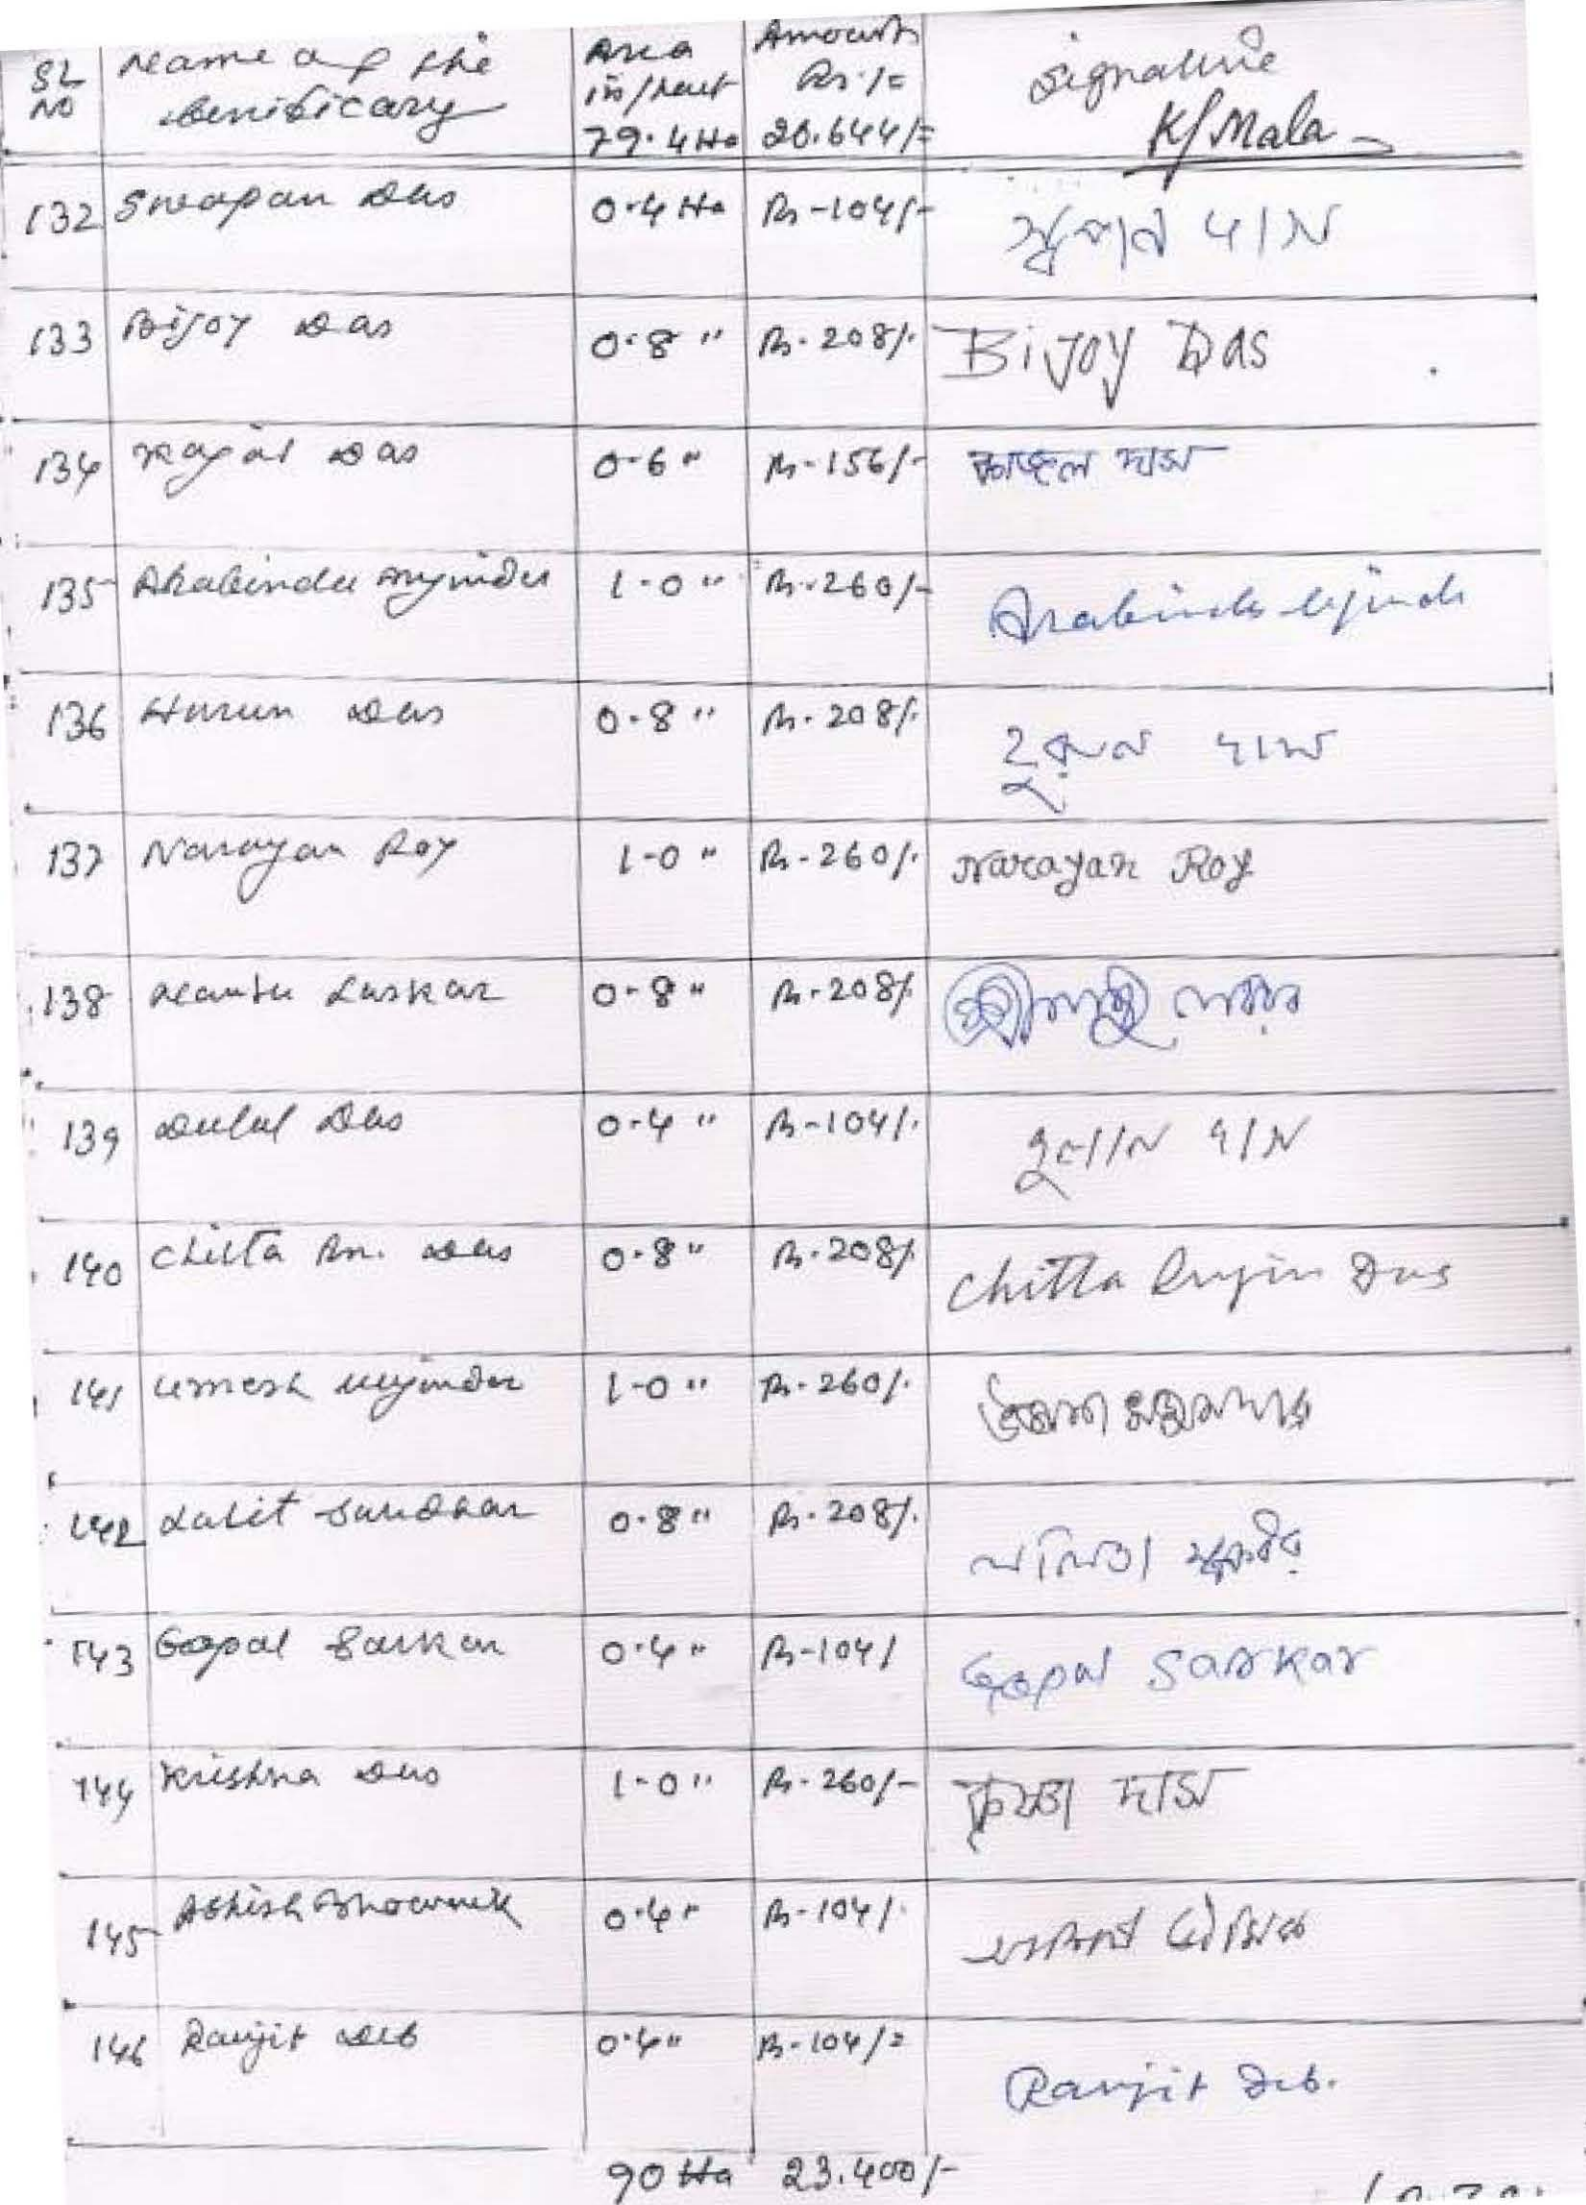 SL NO Name of the benificary Area in/hact Amount Rs/= Signature
79.4Ha 20.644/= K/Mala
132 Swapan Das 0.4 Ha Rs-104/- স্বপন দাস
133 Bijoy Das 0.8 " Rs. 208/. Bijoy Das
134 Kajal Das 0-6 " Rs-156/- কাজল দাস
135 Arabindu 1-0 " Rs.260/-
136 Harun Das 0.8 " Rs. 208/. হারুন দাস
137 Narayan Roy 1-0 " Rs-260/. Narayan Roy
138 Laskar 0-8 " Rs.208/. লস্কর
139 Dulal Das 0.4 " Rs-104/. দুলাল দাস
140 Chitta Rn. Das 0.8 " Rs.208/. Chitta Das
141 Umesh 1-0 " Rs.260/. উমেশ মজুমদার
142 Lalit 0.8 " Rs. 208/.
143 Gopal Sarkar 0.4 " Rs-104/ Gopal Sarkar
144 Krishna Das 1-0 " Rs-260/- কৃষ্ণা দাস
145 Ashish Bhowmik 0.4 " Rs-104/. ভৌমিক
146 Ranjit Deb 0.4 " Rs-104/= Ranjit Deb.
90 Ha 23.400/-